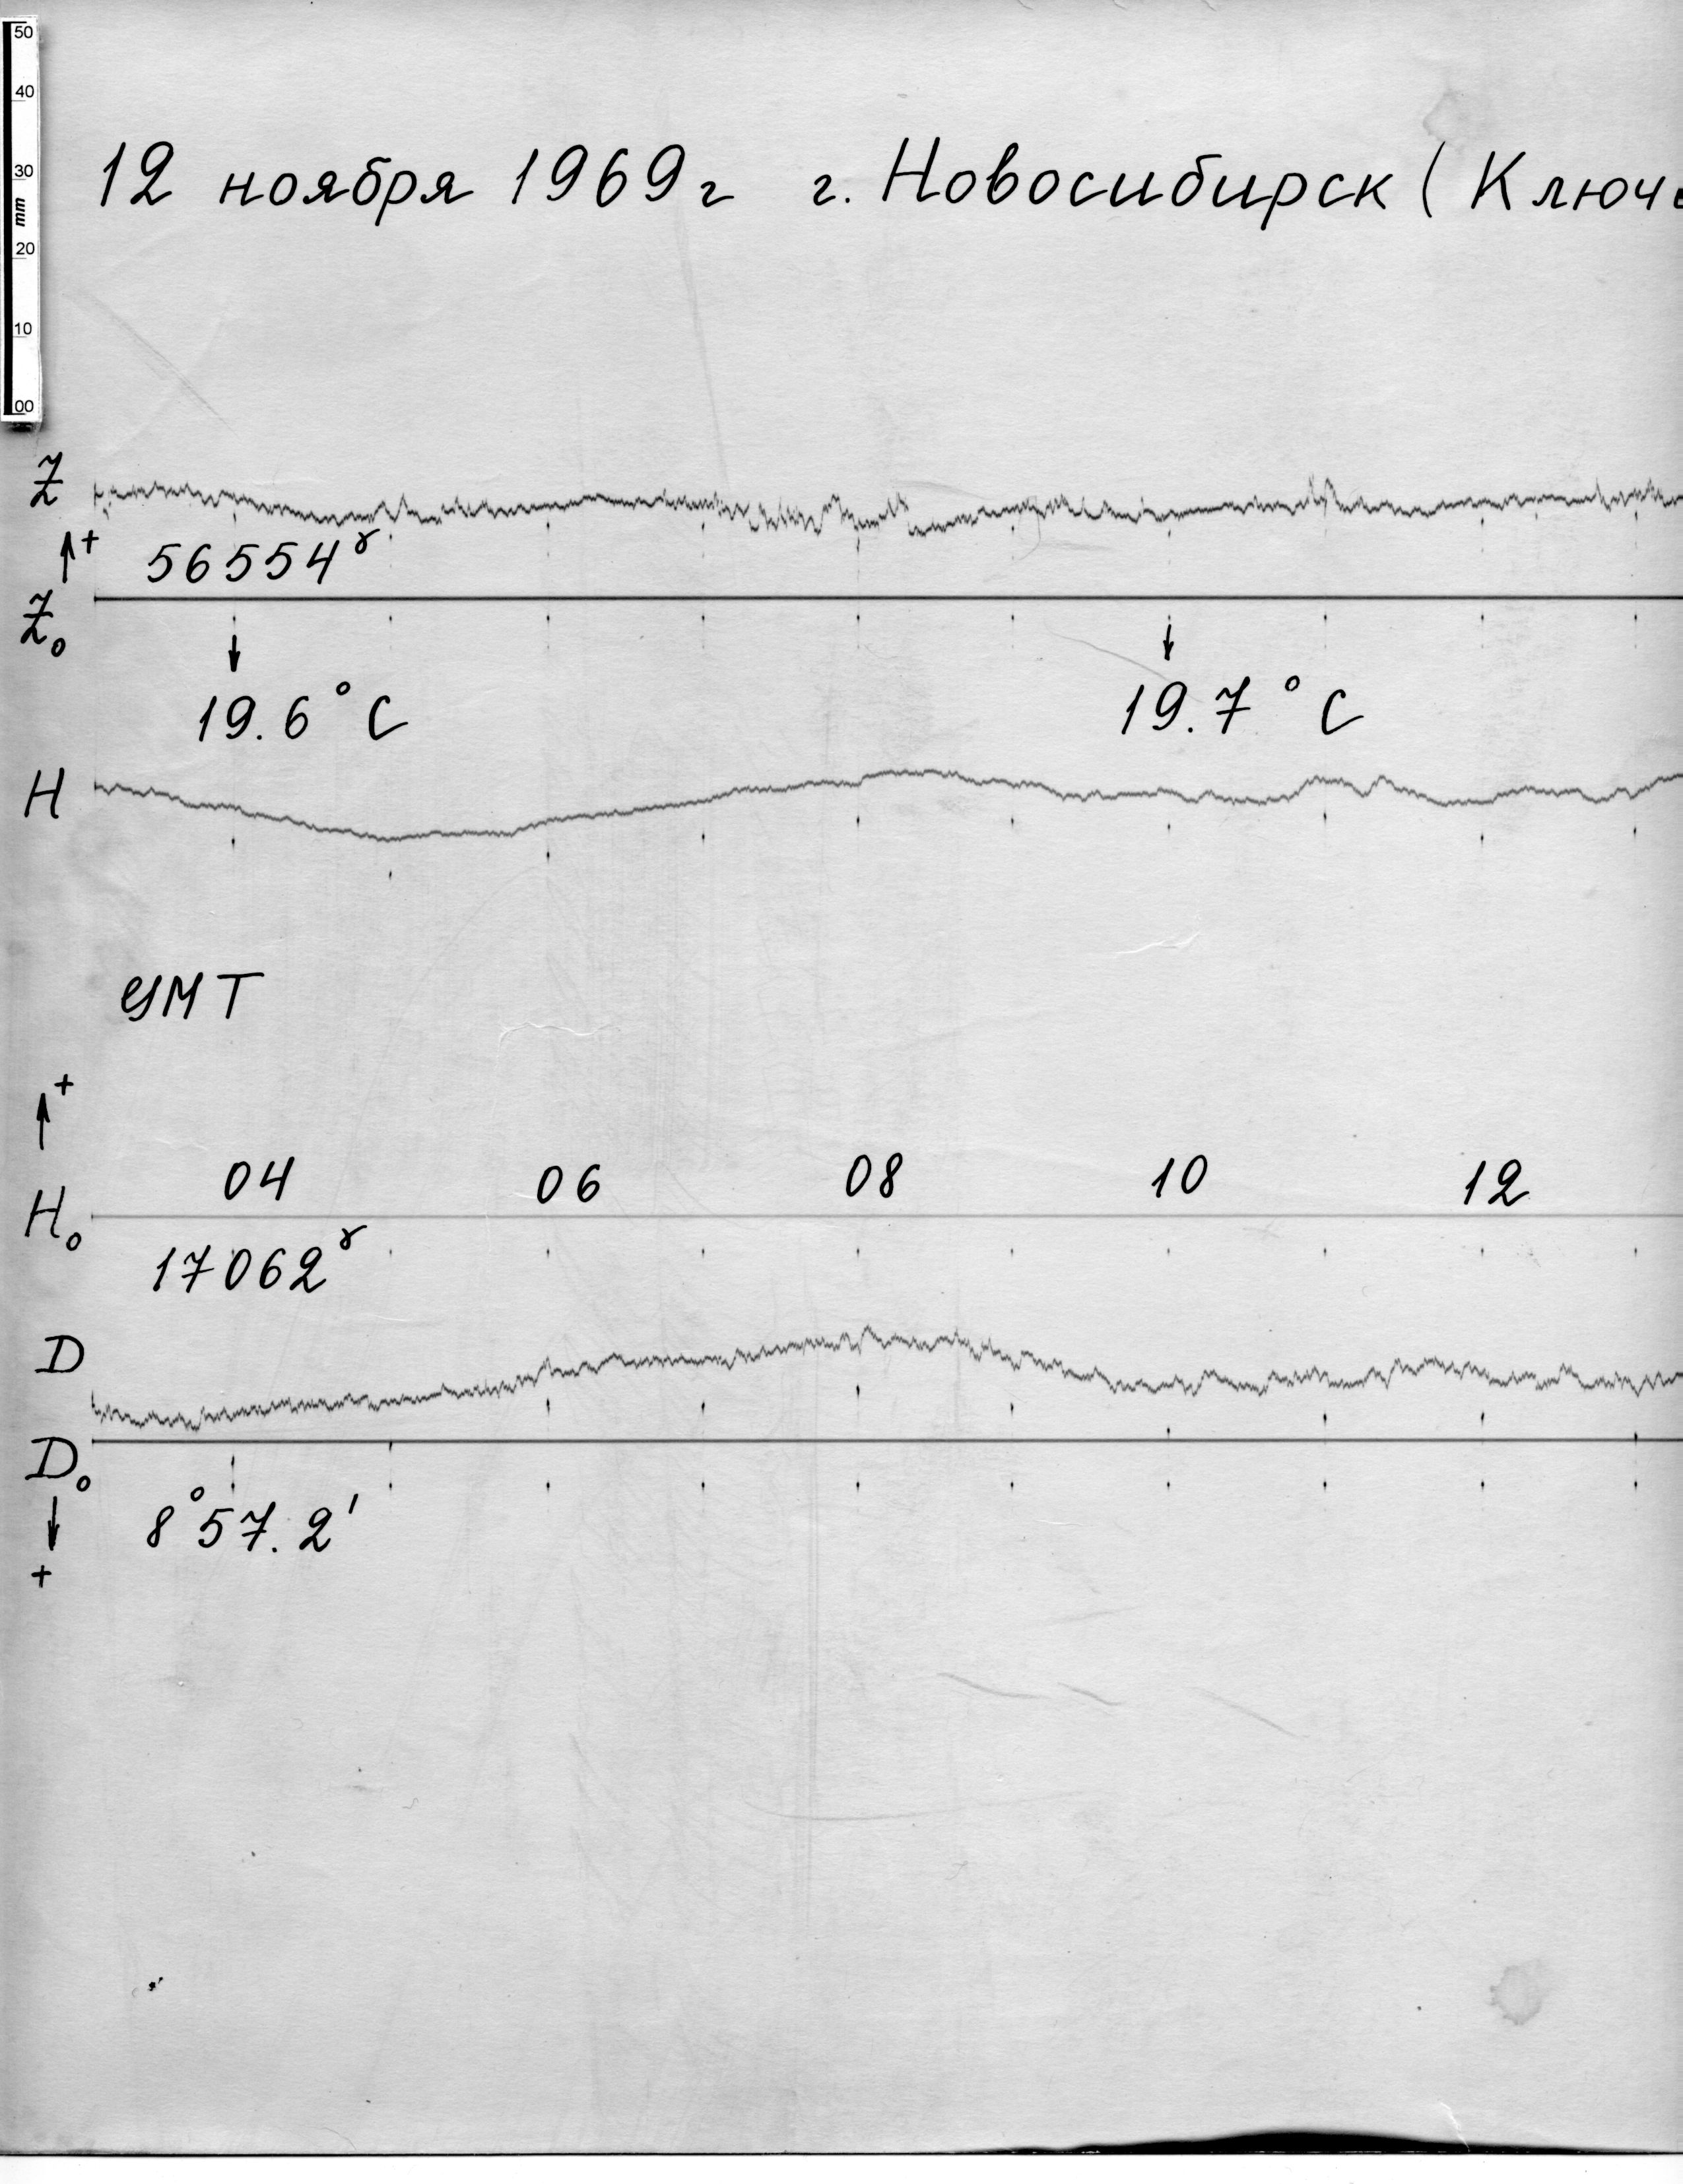 50
40
30
mm
20
10
00
12 ноября 1969 г г. Новосибирск (Ключе
Z
↑+ 56554ᵞ
Z₀
↓ ↓
19.6°C 19.7°C
H
УМТ
↑+
04 06 08 10 12
H₀
17062ᵞ
D
D₀
↓ 8°57.2'
+